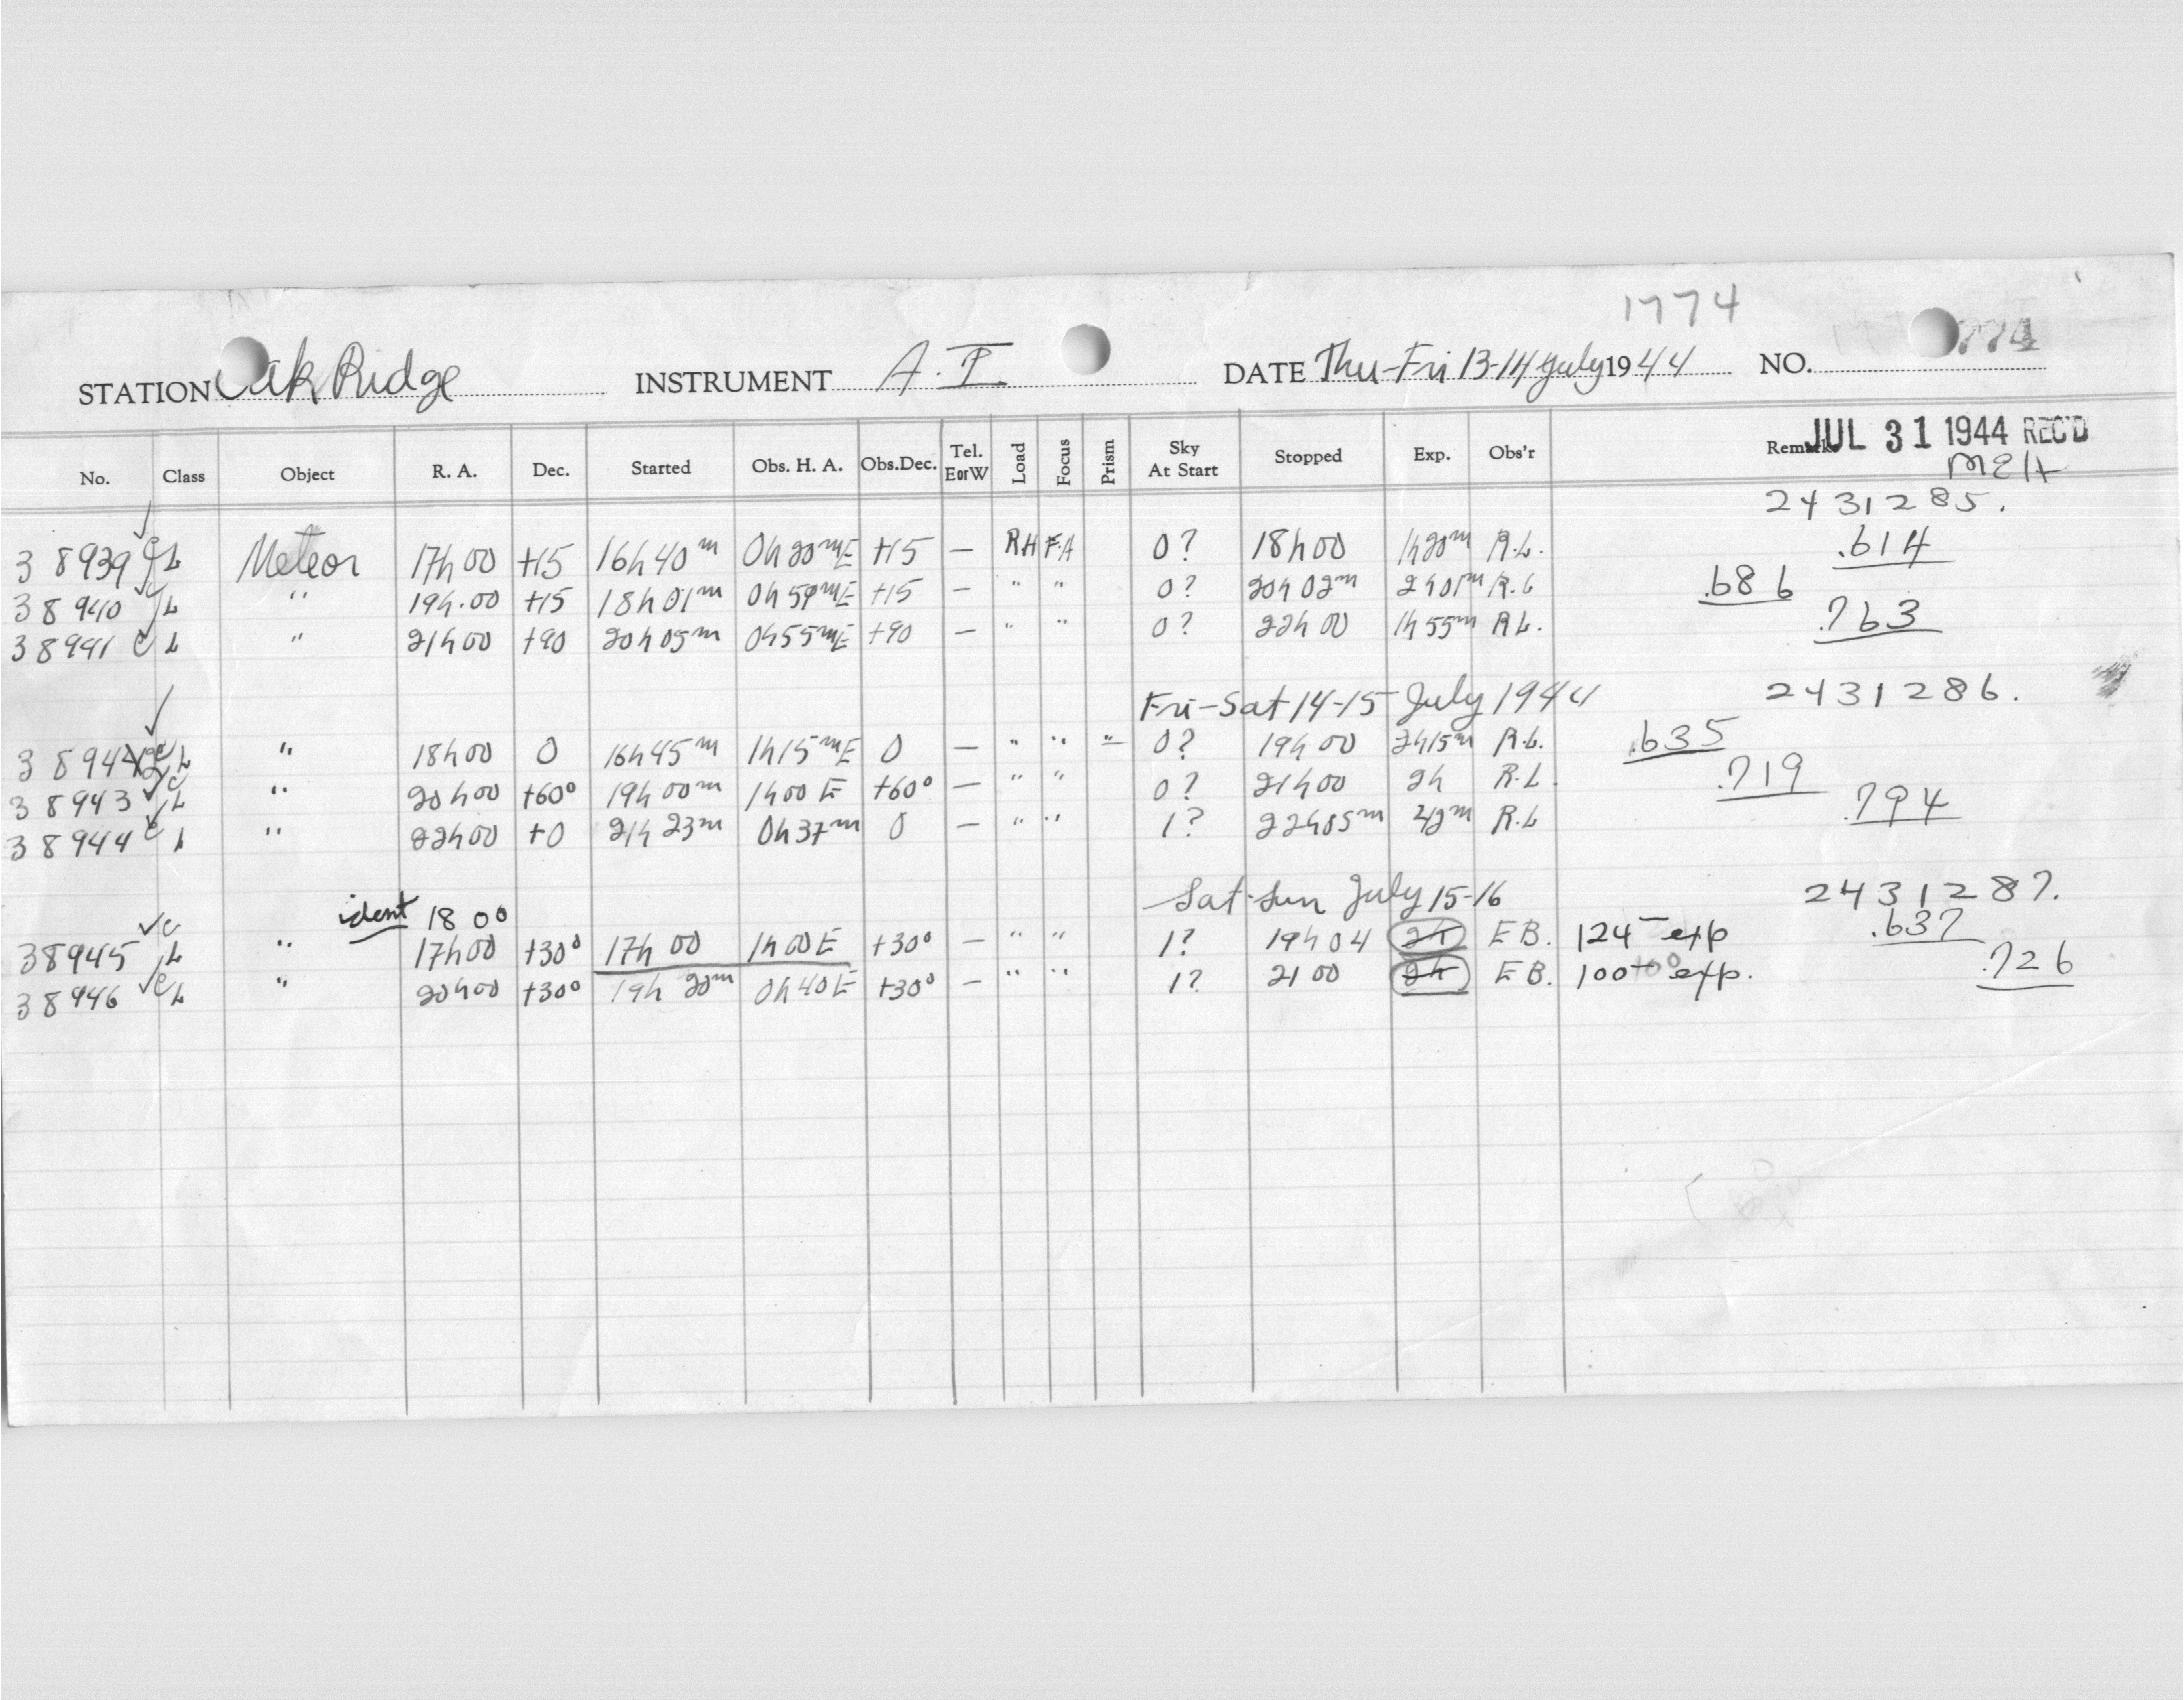 1774
STATION Oak Ridge INSTRUMENT A. I. DATE Thu-Fri 13-14 July 1944 NO. 1774
JUL 31 1944 REC'D
No. Class Object R. A. Dec. Started Obs. H. A. Obs.Dec. Tel. E or W Load Focus Prism Sky At Start Stopped Exp. Obs'r Remarks
2431285.
38939 L Meteor 17h00 +15 16h40m 0h20mE +15 — RH FA 0? 18h00 1h20m R.L. .614
38940 L " 19h.00 +15 18h01m 0h59mE +15 — " " 0? 20h02m 2h01m R.L .686
38941 L " 21h00 +90 20h05m 0h55mE +90 — " " 0? 22h00 1h55m RL. .763
Fri-Sat 14-15 July 1944 2431286.
38942 L " 18h00 0 16h45m 1h15mE 0 — " " " 0? 19h00 2h15m R.L. .635
38943 L " 20h00 +60° 19h00m 1h00E +60° — " " 0? 21h00 2h R.L. .719
38944 L " 22h00 +0 21h23m 0h37m 0 — " " 1? 22h05m 42m R.L .794
Sat-Sun July 15-16 2431287.
ident 18 00
38945 L " 17h00 +30° 17h00 1h00E +30° — " " 1? 19h04 2h EB. 124m exp .637
38946 L " 20h00 +30° 19h20m 0h40E +30° — " " 1? 21 00 2h EB. 100m exp. .726